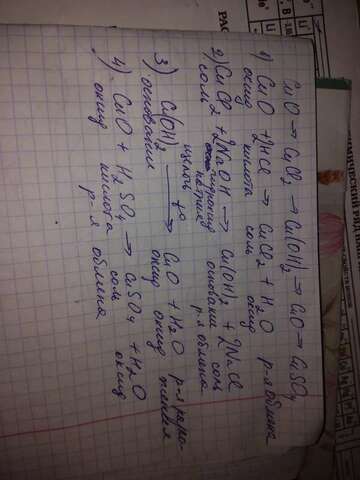 CuO → CuCl₂ → Cu(OH)₂ → CuO → CuSO₄
1) CuO + 2HCl → CuCl₂ + H₂O р-я обмена
оксид кислота соль оксид
2) CuCl₂ + 2NaOH → Cu(OH)₂ + 2NaCl
соль гидроксид основание соль
натрия р-я обмена
щелочь
3) Cu(OH)₂ →t° CuO + H₂O р-я разло-
основание оксид оксид жения
4) CuO + H₂SO₄ → CuSO₄ + H₂O
оксид кислота соль оксид
р-я обмена